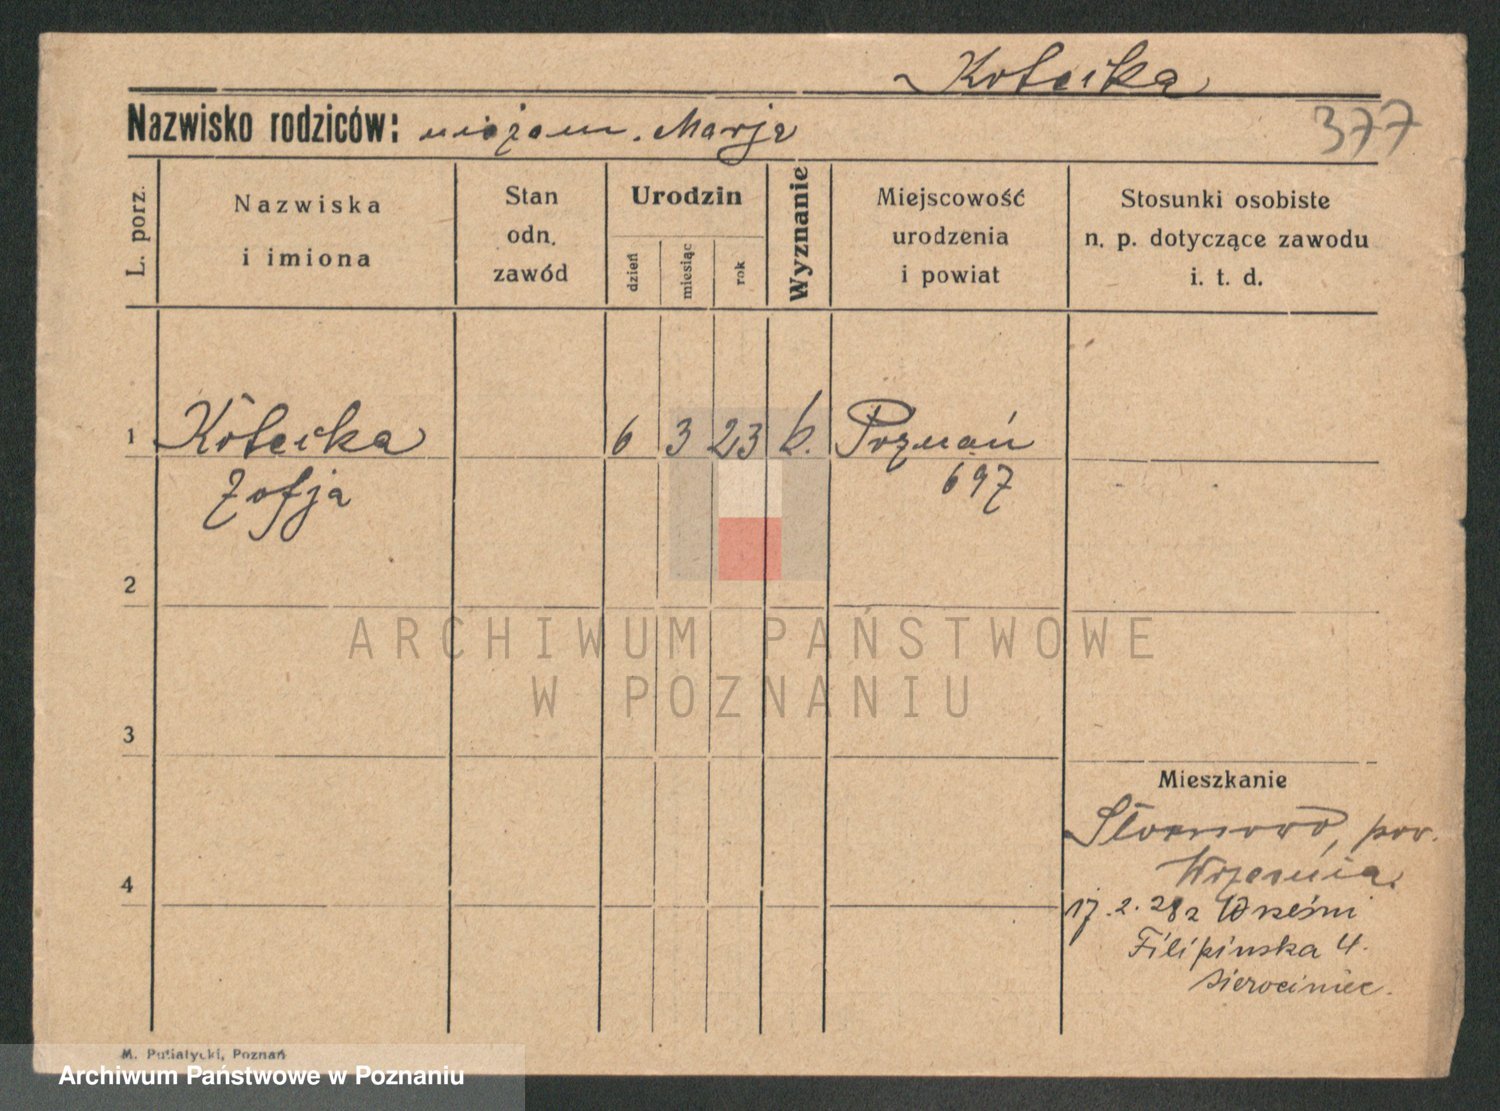 Kotecka
Nazwisko rodziców: niezam. Marja
377
L. porz.
Nazwiska
i imiona
Stan
odn.
zawód
Urodzin
dzień
miesiąc
rok
Wyznanie
Miejscowość
urodzenia
i powiat
Stosunki osobiste
n. p. dotyczące zawodu
i. t. d.
1 Kotecka 6 3 23 k. Poznań
Zofja 697
2
3
4
Mieszkanie
pow.
Września.
17.2.28 z Wrześni
Filipińska 4.
Sierociniec.
M. Putiatycki, Poznań
ARCHIWUM PAŃSTWOWE
W POZNANIU
Archiwum Państwowe w Poznaniu